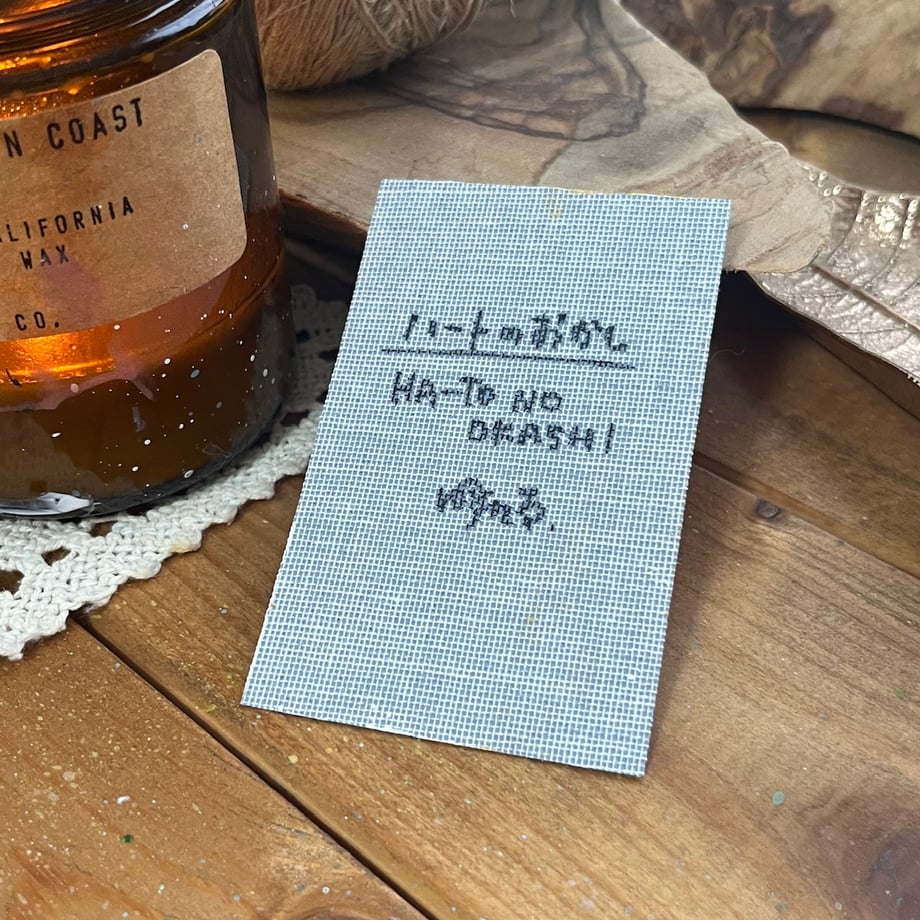 N COAST
ALIFORNIA
WAX
CO.
ハートのおかし
HA-TO NO
OKASHI